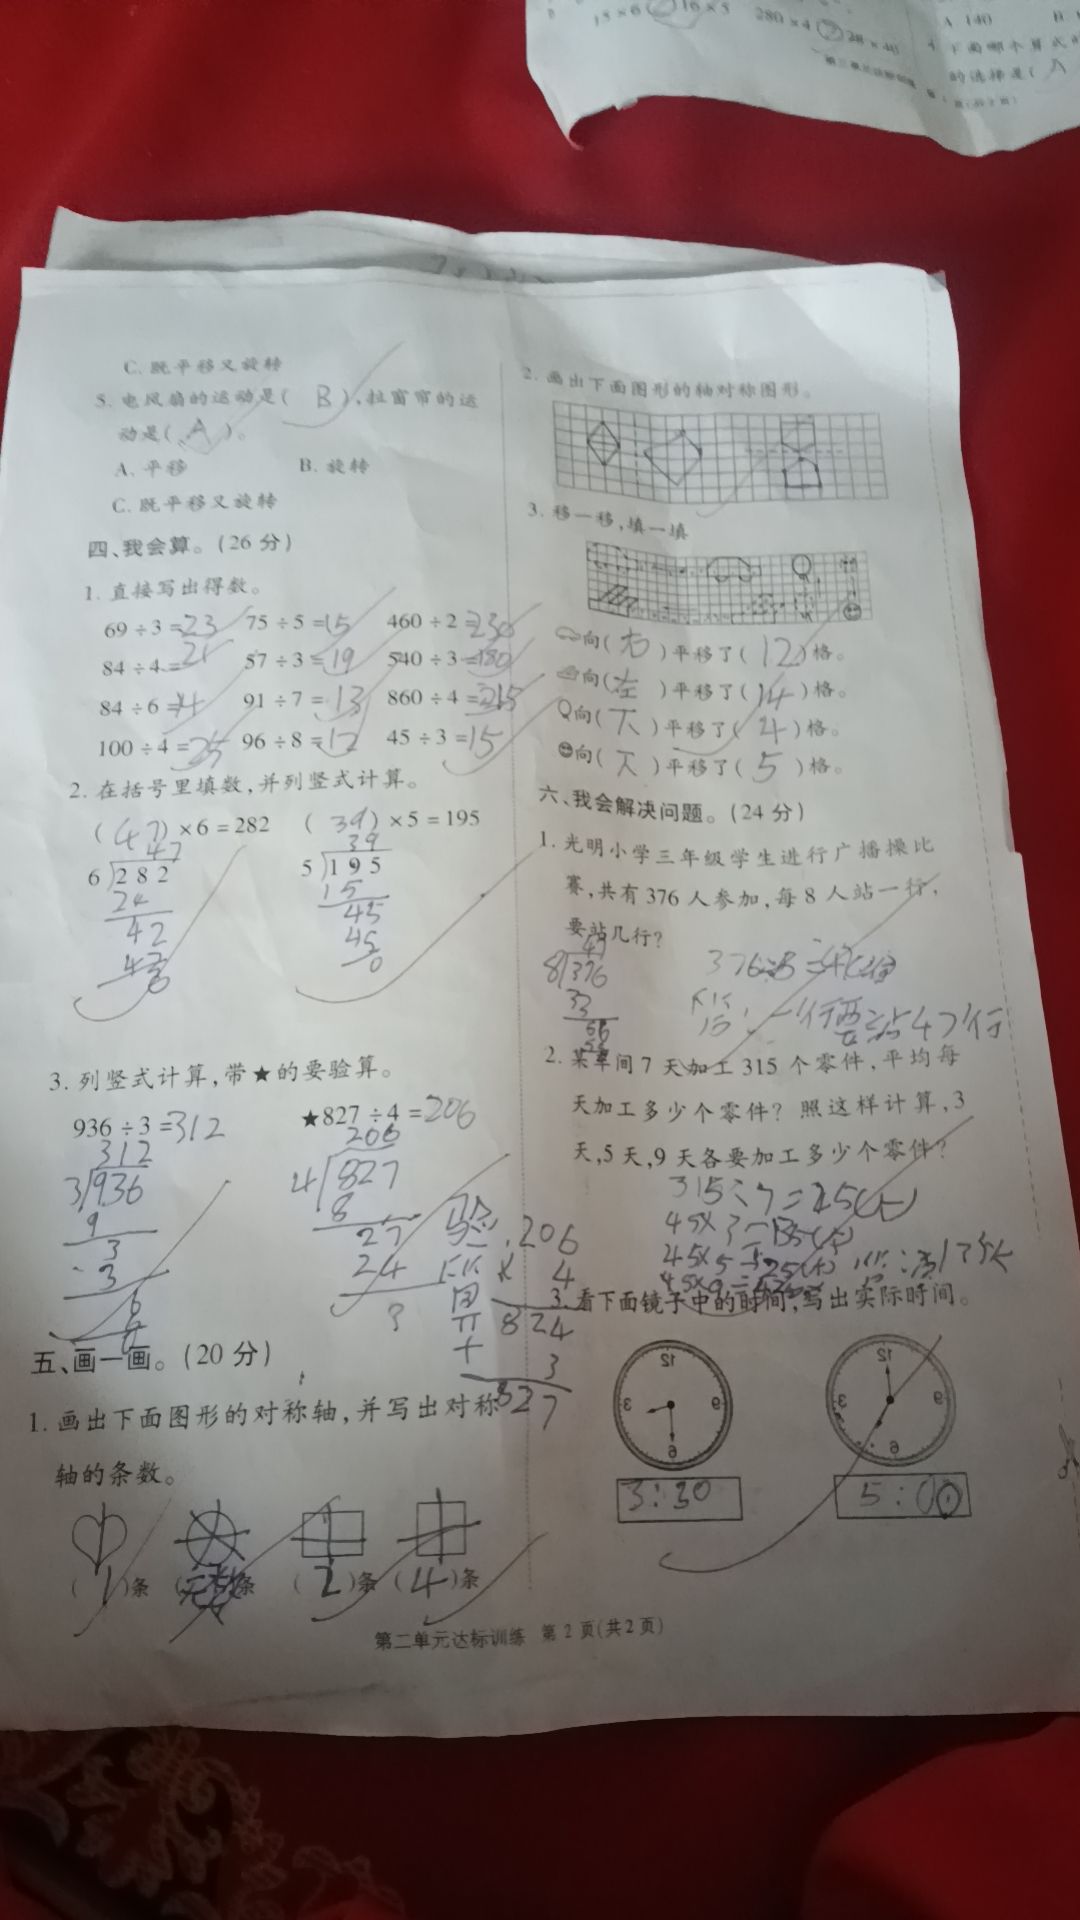 15×6 16×5 280×4 28×40
A 140
的选择是(A
C. 既平移又旋转
5. 电风扇的运动是( B ),拉窗帘的运
动是( A )。
A. 平移 B. 旋转
C. 既平移又旋转
四、我会算。(26 分)
1. 直接写出得数。
69÷3=23 75÷5=15 460÷2=230
84÷4=21 57÷3=19 540÷3=180
84÷6=14 91÷7=13 860÷4=215
100÷4=25 96÷8=12 45÷3=15
2. 在括号里填数,并列竖式计算。
(47)×6=282 (39)×5=195
47 39
6)282 5)195
24 15
42 45
42 45
0 0
3. 列竖式计算,带★的要验算。
936÷3=312 ★827÷4=206
312 206
3)936 4)827
9 8
3 27
3 24
6 3
6
0
验 206
× 4
824
+ 3
827
五、画一画。(20 分)
1. 画出下面图形的对称轴,并写出对称
轴的条数。
(1)条 ( )条 (2)条 (4)条
2. 画出下面图形的轴对称图形。
3. 移一移,填一填
向(右)平移了(12)格。
向(左)平移了(14)格。
向(下)平移了(4)格。
向(下)平移了(5)格。
六、我会解决问题。(24 分)
1. 光明小学三年级学生进行广播操比
赛,共有 376 人参加,每 8 人站一行,
要站几行?
47
8)376
32
56
56
答:一行要站47行
2. 某车间 7 天加工 315 个零件,平均每
天加工多少个零件? 照这样计算,3
天,5 天,9 天各要加工多少个零件?
315÷7=45
45×3=135
45×5=225
3. 看下面镜子中的时间,写出实际时间。
12 3 6 9
12 3 6 9
3:30 5:00
第二单元达标训练 第 2 页(共 2 页)